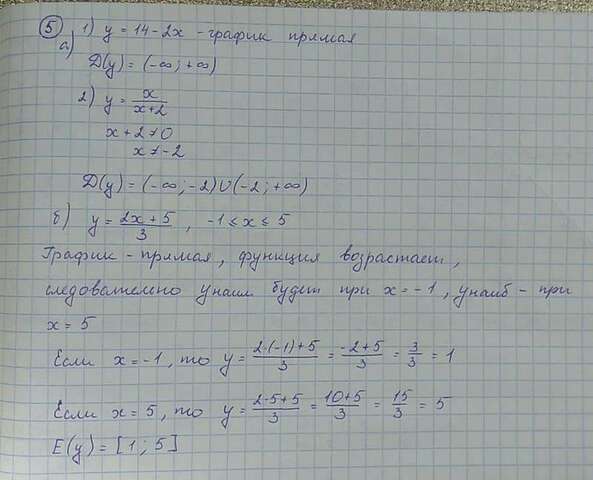 5 1) y = 14 - 2x - график прямая
а)
D(y) = (-∞; +∞)
2) y = x/(x+2)
x + 2 ≠ 0
x ≠ -2
D(y) = (-∞; -2) ∪ (-2; +∞)
б) y = (2x + 5)/3 , -1 ≤ x ≤ 5
График - прямая, функция возрастает,
следовательно yнаим будет при x = -1, yнаиб - при
x = 5
Если x = -1, то y = (2·(-1)+5)/3 = (-2+5)/3 = 3/3 = 1
Если x = 5, то y = (2·5+5)/3 = (10+5)/3 = 15/3 = 5
E(y) = [1; 5]